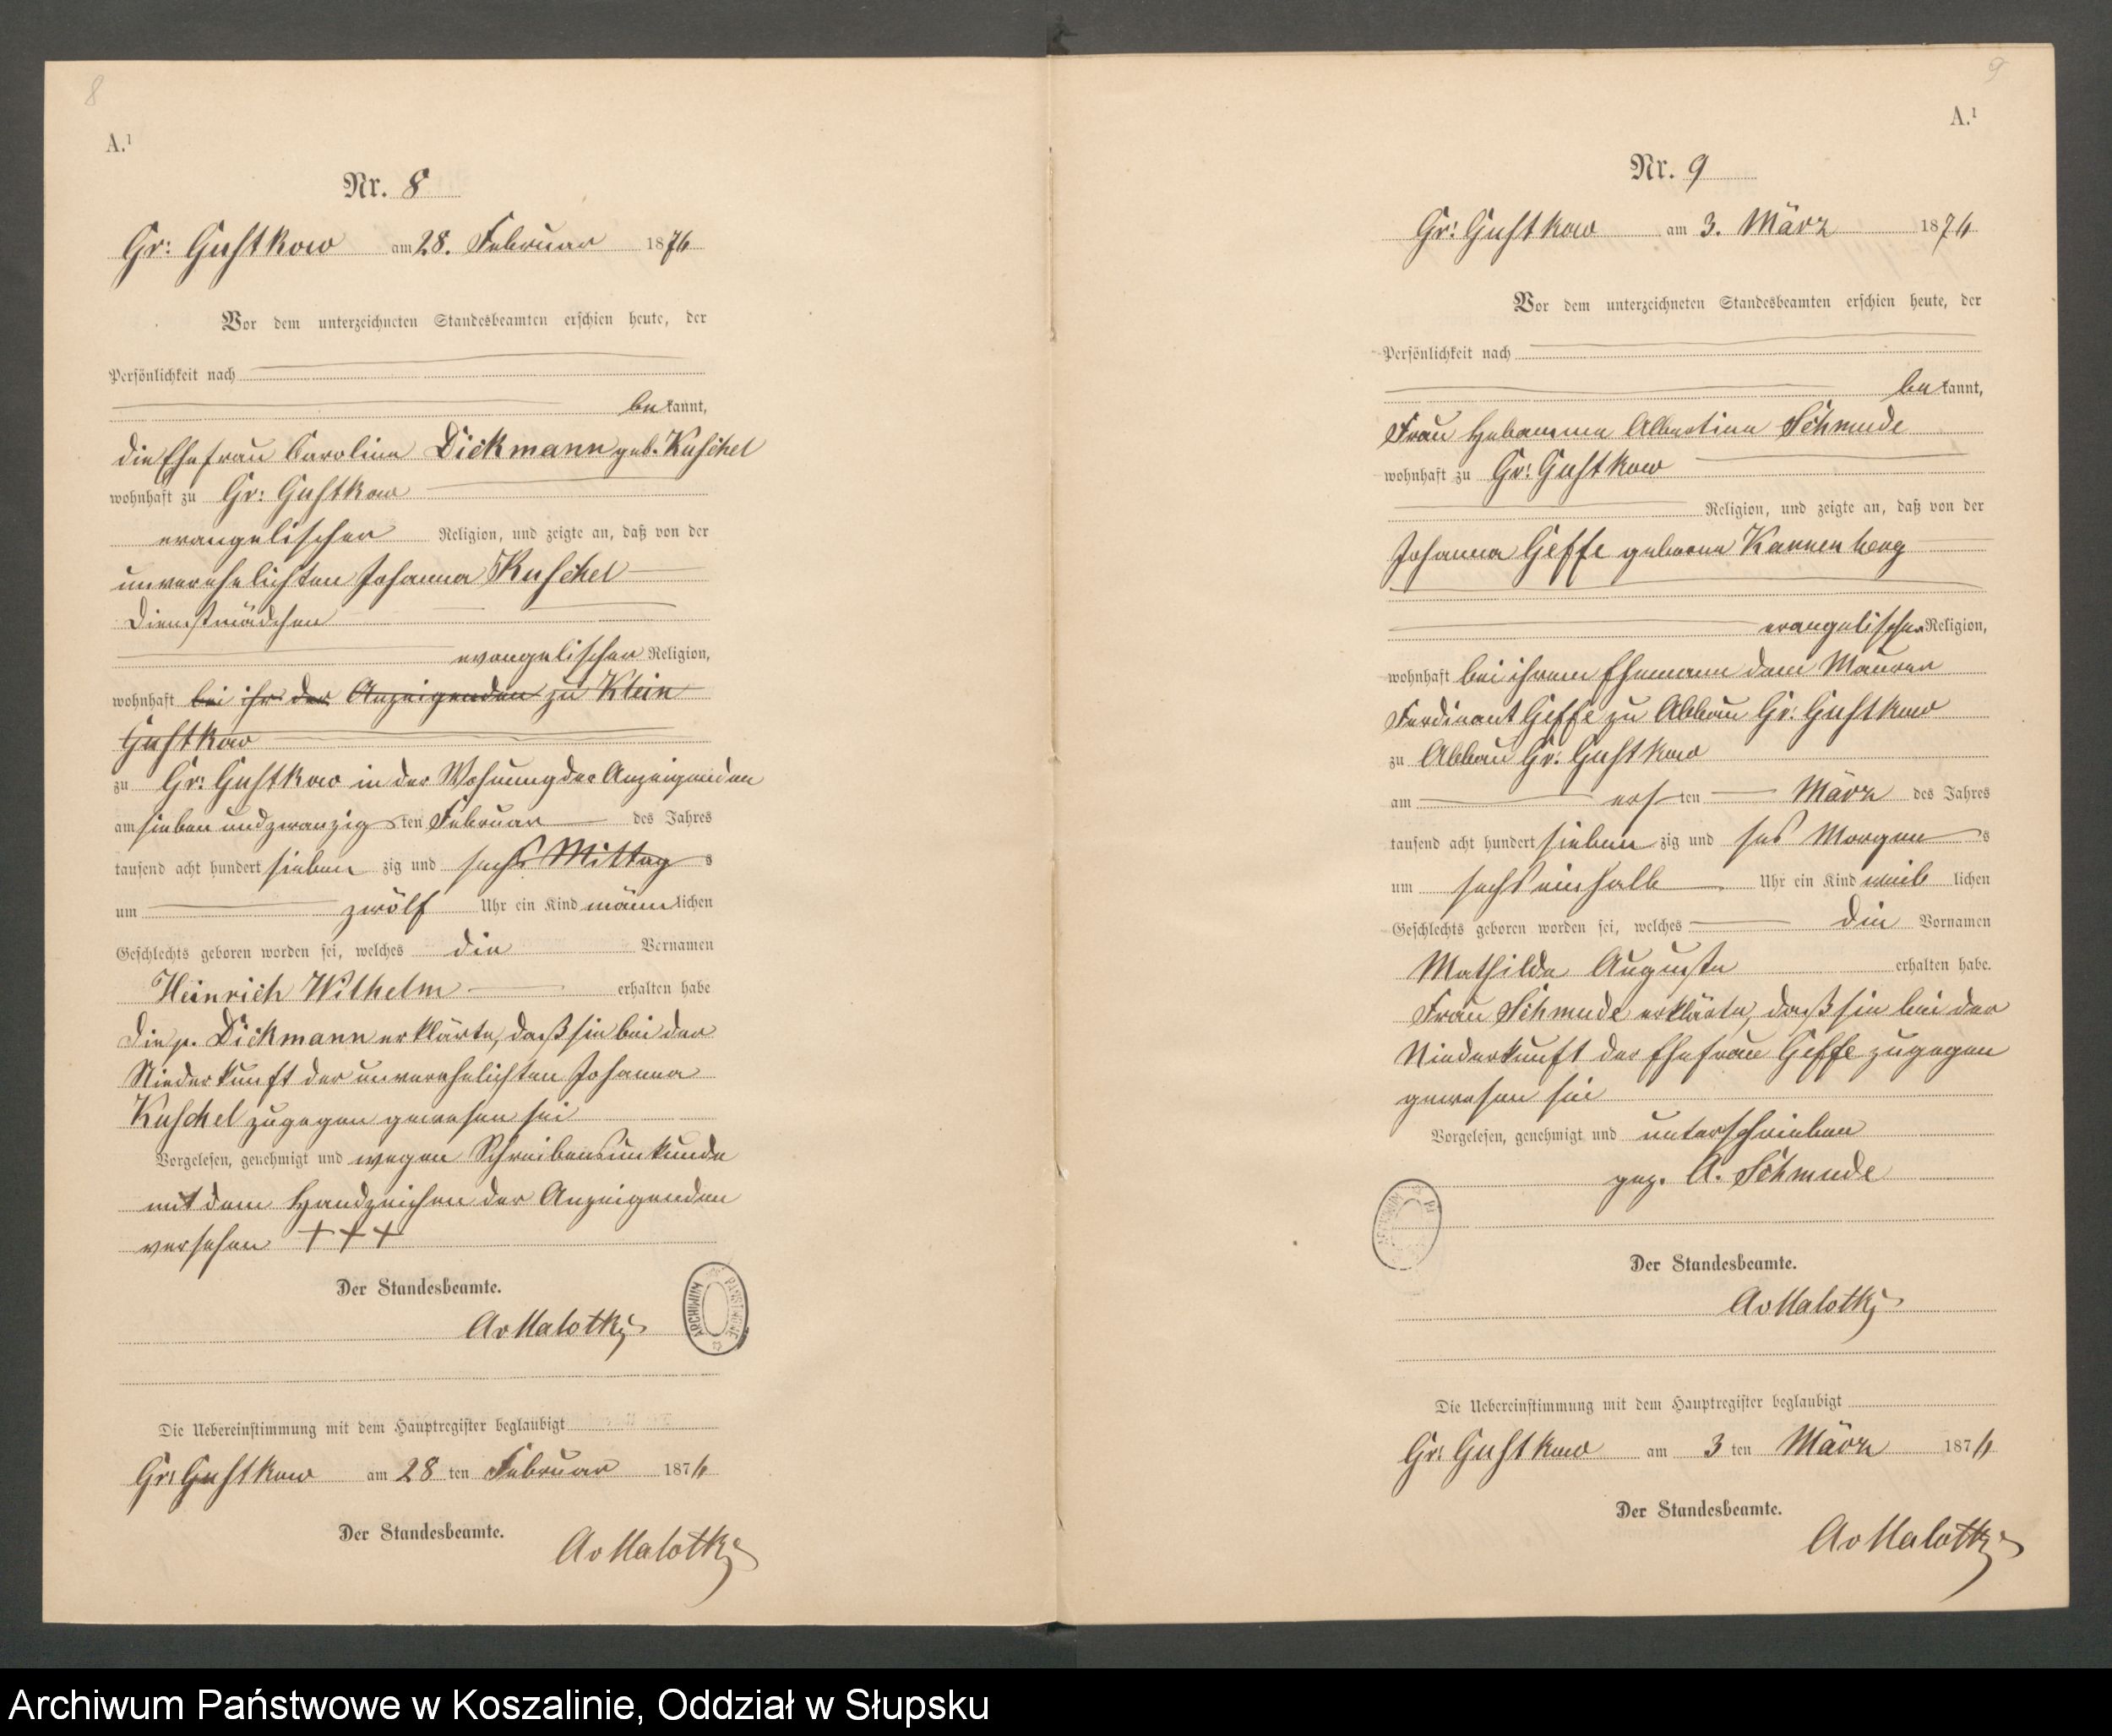 8
A.¹
Nr. 8
Gr: Gustkow am 28. Februar 1876
Vor dem unterzeichneten Standesbeamten erschien heute, der
Persönlichkeit nach
bekannt,
die Ehefrau Caroline Dickmann geb. Kuschel
wohnhaft zu Gr: Gustkow
evangelischer Religion, und zeigte an, daß von der
unverehelichten Johanna Kuschel
Dienstmädchen
evangelischer Religion,
wohnhaft bei ihr der Anzeigenden zu Klein
Gustkow
zu Gr: Gustkow in der Wohnung der Anzeigenden
am sieben und zwanzigsten Februar des Jahres
tausend acht hundert sieben zig und sechs Mittag s
um zwölf Uhr ein Kind männlichen
Geschlechts geboren worden sei, welches die Vornamen
Heinrich Wilhelm erhalten habe
Die p. Dickmann erklärte, daß sie bei der
Niederkunft der unverehelichten Johanna
Kuschel zugegen gewesen sei
Vorgelesen, genehmigt und wegen Schreibensunkunde
mit dem Handzeichen der Anzeigenden
versehen +++
Der Standesbeamte.
AvMalotky
ARCHIWUM PAŃSTWOWE
Die Uebereinstimmung mit dem Hauptregister beglaubigt
Gr: Gustkow am 28 ten Februar 1876
Der Standesbeamte.
AvMalotky
9
A.¹
Nr. 9
Gr: Gustkow am 3. März 1876
Vor dem unterzeichneten Standesbeamten erschien heute, der
Persönlichkeit nach
bekannt,
Frau Hebamme Albertine Schmude
wohnhaft zu Gr: Gustkow
Religion, und zeigte an, daß von der
Johanna Geffe geborene Kannenberg
evangelischer Religion,
wohnhaft bei ihrem Ehemann dem Maurer
Ferdinant Geffe zu Abbau Gr: Gustkow
zu Abbau Gr: Gustkow
am ersten März des Jahres
tausend acht hundert sieben zig und sechs Morgen s
um sechs einhalb Uhr ein Kind weiblichen
Geschlechts geboren worden sei, welches die Vornamen
Mathilde Auguste erhalten habe.
Frau Schmude erklärte, daß sie bei der
Niederkunft der Ehefrau Geffe zugegen
gewesen sei
Vorgelesen, genehmigt und unterschrieben
gez. A. Schmude
Der Standesbeamte.
AvMalotky
Die Uebereinstimmung mit dem Hauptregister beglaubigt
Gr: Gustkow am 3 ten März 1876
Der Standesbeamte.
AvMalotky
Archiwum Państwowe w Koszalinie, Oddział w Słupsku